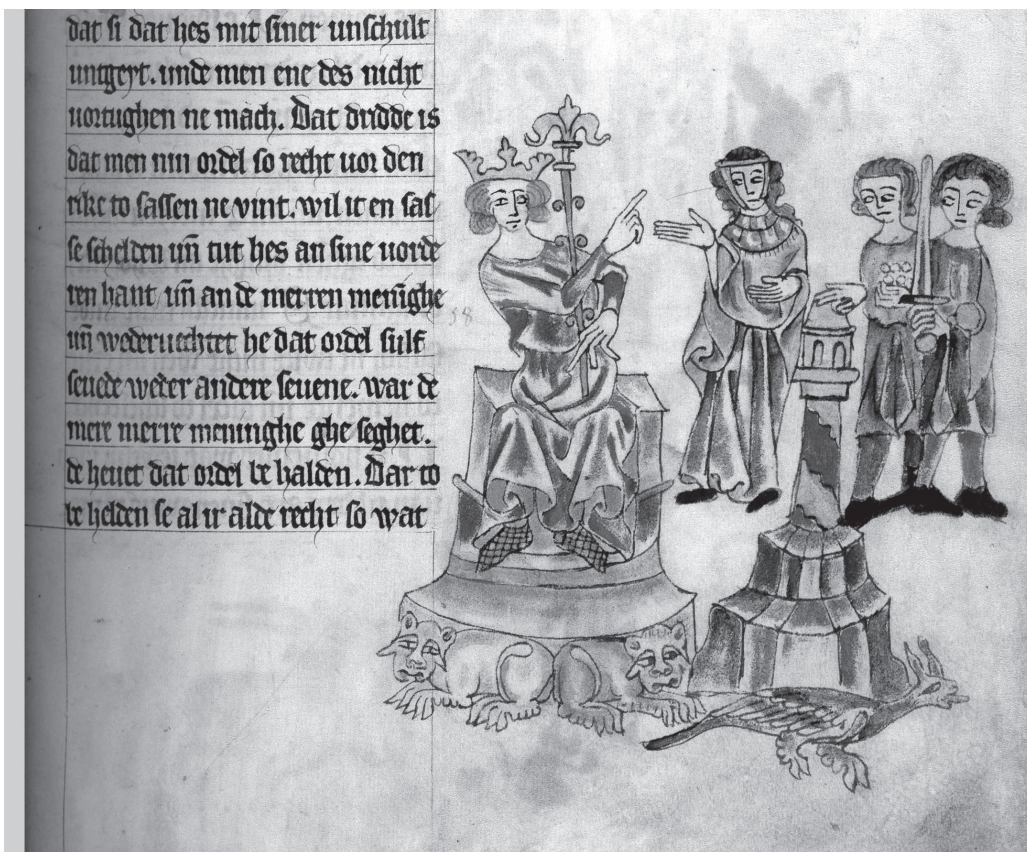 dat si dat hes mit siner unschult
untgeyt. unde men ene des nicht
uortughen ne mach. Dat dridde is
dat men nin ordel so recht uor den
rike to sassen ne vint. wil it en sas
se schelden un̄ tut hes an sine uorde
ren hant un̄ an de merren menīghe
un̄ wederuechtet he dat ordel sulf
seuede weder andere seuene. war de
mere merre meninghe ghe seghet.
de heuet dat ordel be halden. Dar to
be helden se al ir alde recht so wat
58